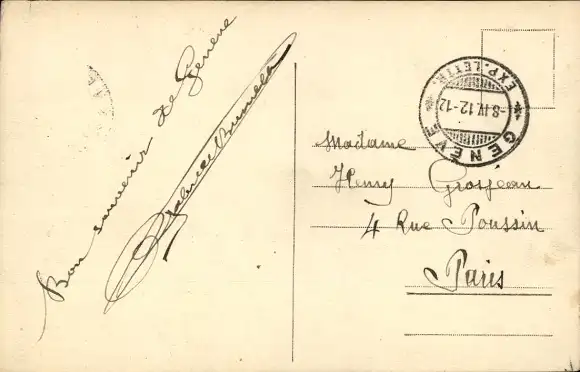 Bon souvenir de Genève
Madame
Henry Grosjean
4 Rue Poussin
Paris
GENÈVE
EXP. LETTR.
8.IV.12-12